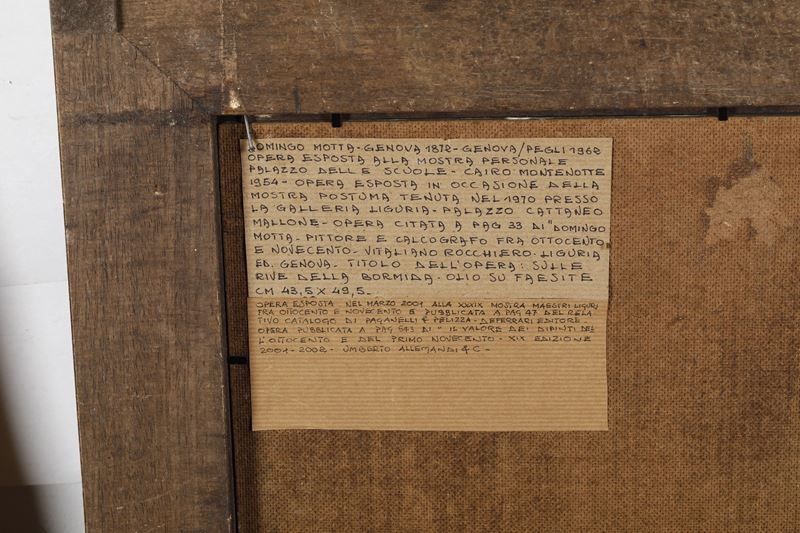 DOMINGO MOTTA - GENOVA 1872 - GENOVA/PEGLI 1962
OPERA ESPOSTA ALLA MOSTRA PERSONALE
PALAZZO DELLE SCUOLE - CAIRO MONTENOTTE
1954 - OPERA ESPOSTA IN OCCASIONE DELLA
MOSTRA POSTUMA TENUTA NEL 1970 PRESSO
LA GALLERIA LIGURIA - PALAZZO CATTANEO
MALLONE - OPERA CITATA A PAG 33 DI "DOMINGO
MOTTA - PITTORE E CALCOGRAFO FRA OTTOCENTO
E NOVECENTO - VITALIANO ROCCHIERO - LIGURIA
ED. GENOVA - TITOLO DELL'OPERA: SULLE
RIVE DELLA BORMIDA - OLIO SU FAESITE
CM 43,5 X 49,5 -
OPERA ESPOSTA NEL MARZO 2001 ALLA XXXIX MOSTRA MAESTRI LIGURI
FRA OTTOCENTO E NOVECENTO E PUBBLICATA A PAG 47 DEL RELA
TIVO CATALOGO DI PAGANELLI & PELIZZA - DEFERRARI EDITORE -
OPERA PUBBLICATA A PAG 543 DI " IL VALORE DEI DIPINTI DEL
L'OTTOCENTO E DEL PRIMO NOVECENTO - XIX EDIZIONE
2001 - 2002 - UMBERTO ALLEMANDI & C -